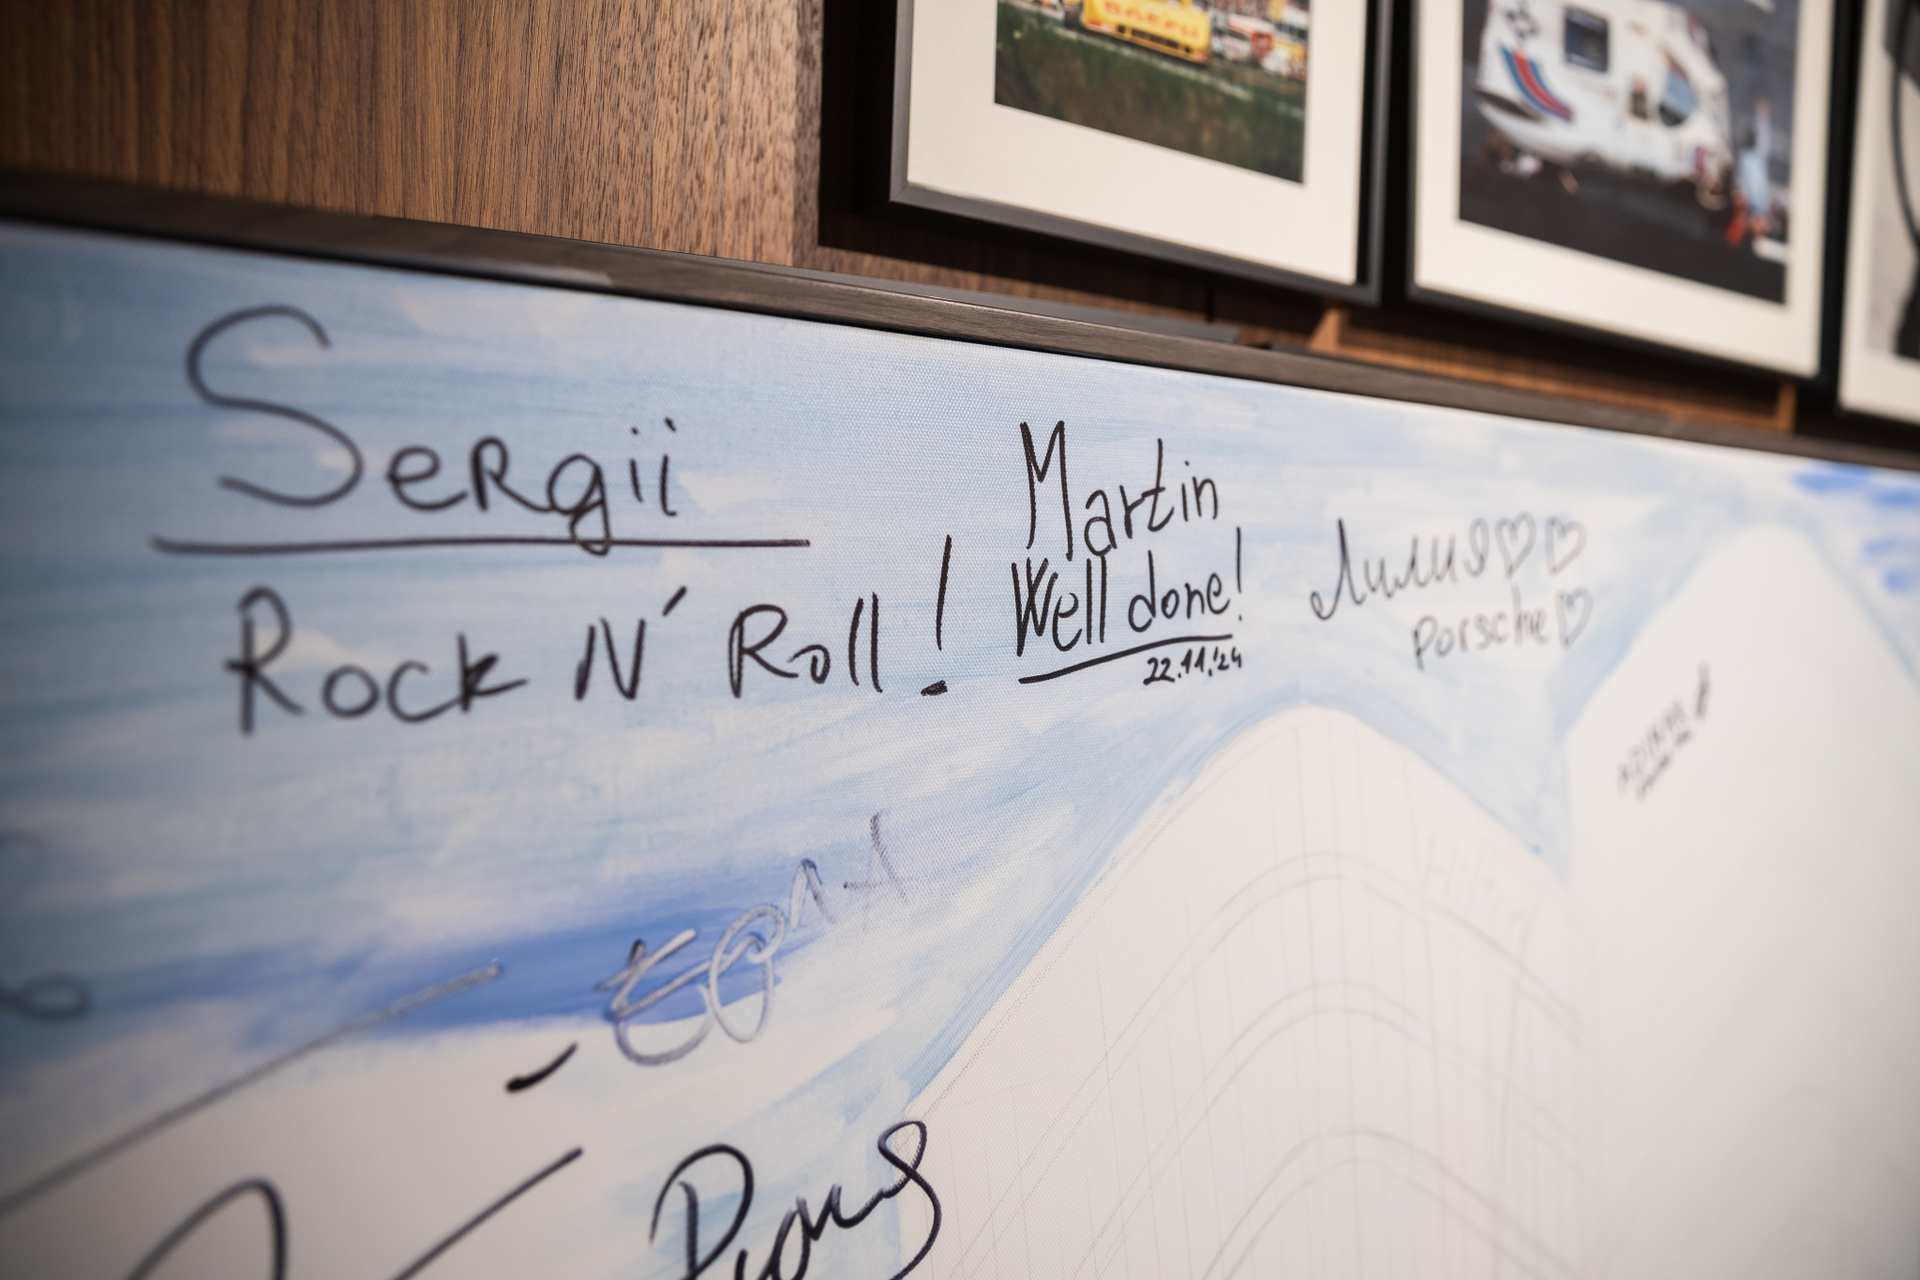 Sergii
Rock N' Roll!
Martin
Well done!
22.11.'24
Лилия♡♡
Porsche♡